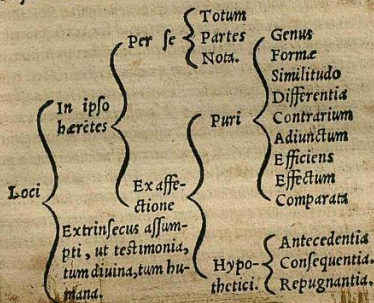 Loci
In ipso
hærẽtes
Per se
Totum
Partes
Nota.
Ex affe-
ctione
Puri
Genus
Formæ
Similitudo
Differentia
Contrarium
Adiunctum
Efficiens
Effectum
Comparata
Hypo-
thetici.
Antecedentia
Consequentia.
Repugnantia.
Extrinsecus assum-
pti, ut testimonia,
tum diuina, tum hu-
mana.